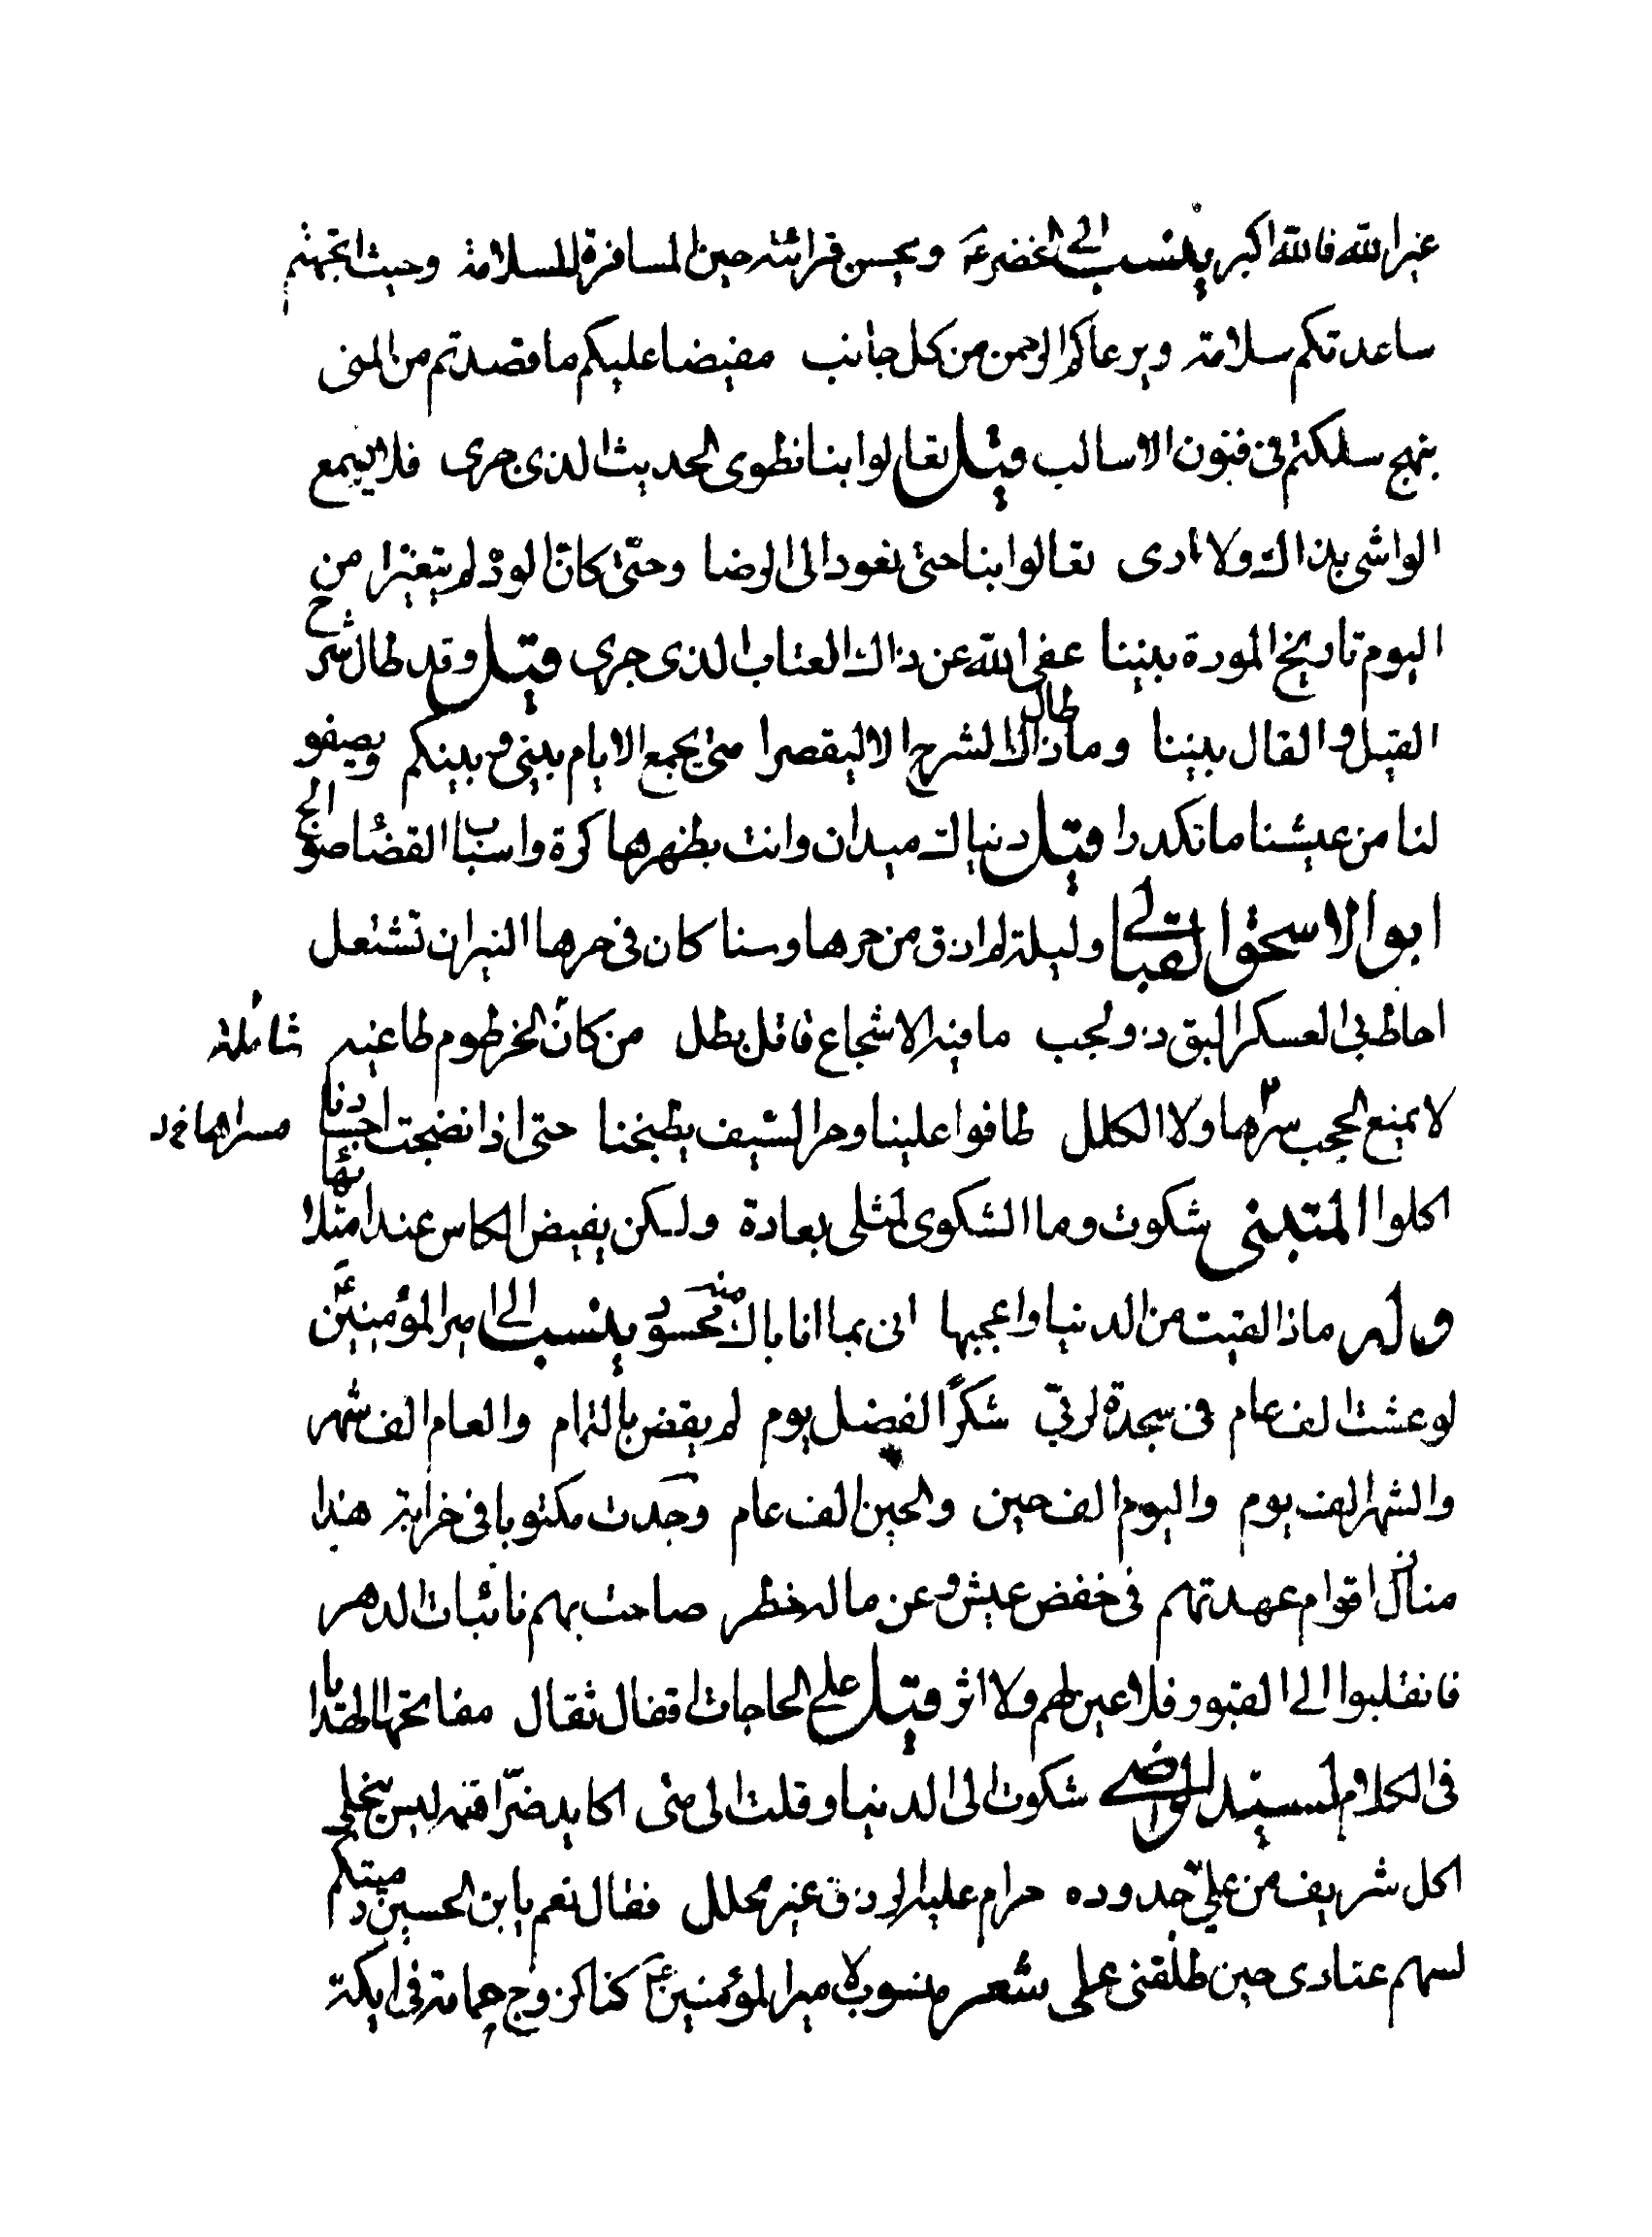 غیر الله فالله اکبر ینسب الی الخضر عم و یحسن قرائته حین المسافرة للسلامة وحیث اتجهتم
ساعدتکم سلامة ویرعاکم الرحمن من کل جانب مفیضا علیکم ما قصدتم من المنی
بنهج سلکتم فی فنون الاسالب قیل تعالوا بنا نطوی الحدیث الذی جری فلا یسمع
الواشی بذاک ولا دری تعالوا بنا حتی نعود الی الرضا وحتی کان الود لم یتغیرا من
الیوم تاریخ المودة بیننا عفی الله عن ذاک العتاب الذی جری قیل وقد طال شرح
القیل والقال بیننا وما طال ذاک الشرح الا لیقصرا متی یجمع الایام بینی وبینکم ویصفو
لنا من عیشنا ما تکدرا قیل دنیاک میدان وانت بظهرها کرة واسباب القضا صوالج
ابو الاسحق القبالی ولیلة لم اذق من حرها وسنا کان فی حرها النیران تشتعل
احاط بی العسکر البق ذو لجب ما فیه الا شجاع فاتک بطل من کل الخرطوم طاعنه شائلة
لا یمنع الحجب سراها ولا الکلل طافوا علینا وحر الصیف یطبخنا حتی اذا نضجت اجسادنا
اکلوا المتنبی شکوت وما الشکوی لمثلی بعادة ولکن یفیض الکاس عند امتلائها
وله ماذا لقیت من الدنیا واعجبها انی بما انا باک منه محسود ینسب الی امیر المؤمنین ع
لو عشت الف عام فی سجدة لربی شکرا لفضل یوم لم یقض بالتمام والعام الف شهر
والشهر الف یوم والیوم الف حین والحین الف عام وجدت مکتوبا فی خرابة هذا
منازل اقوام عهدتهم فی خفض عیش وعن ماله خطر صاحت بهم نائبات الدهر
فانقلبوا الی القبور فلا عین لهم ولا اثر قیل علی الحاجات اقفال ثقال مفاتحها الهدایا
فی الکلام لسید الرضی شکوت الی الدنیا وقلت الی متی اکابد ضرا همه لیس ینجلی
اکل شریف من علی جدوده حرام علیه الرزق غیر محلل فقال نعم یا بن الحسین رمیتکم
لسهم عنادی حین طلقنی علی شعر منسوب لامیر المؤمنین ع کنا کزوج حمامة فی ایکة